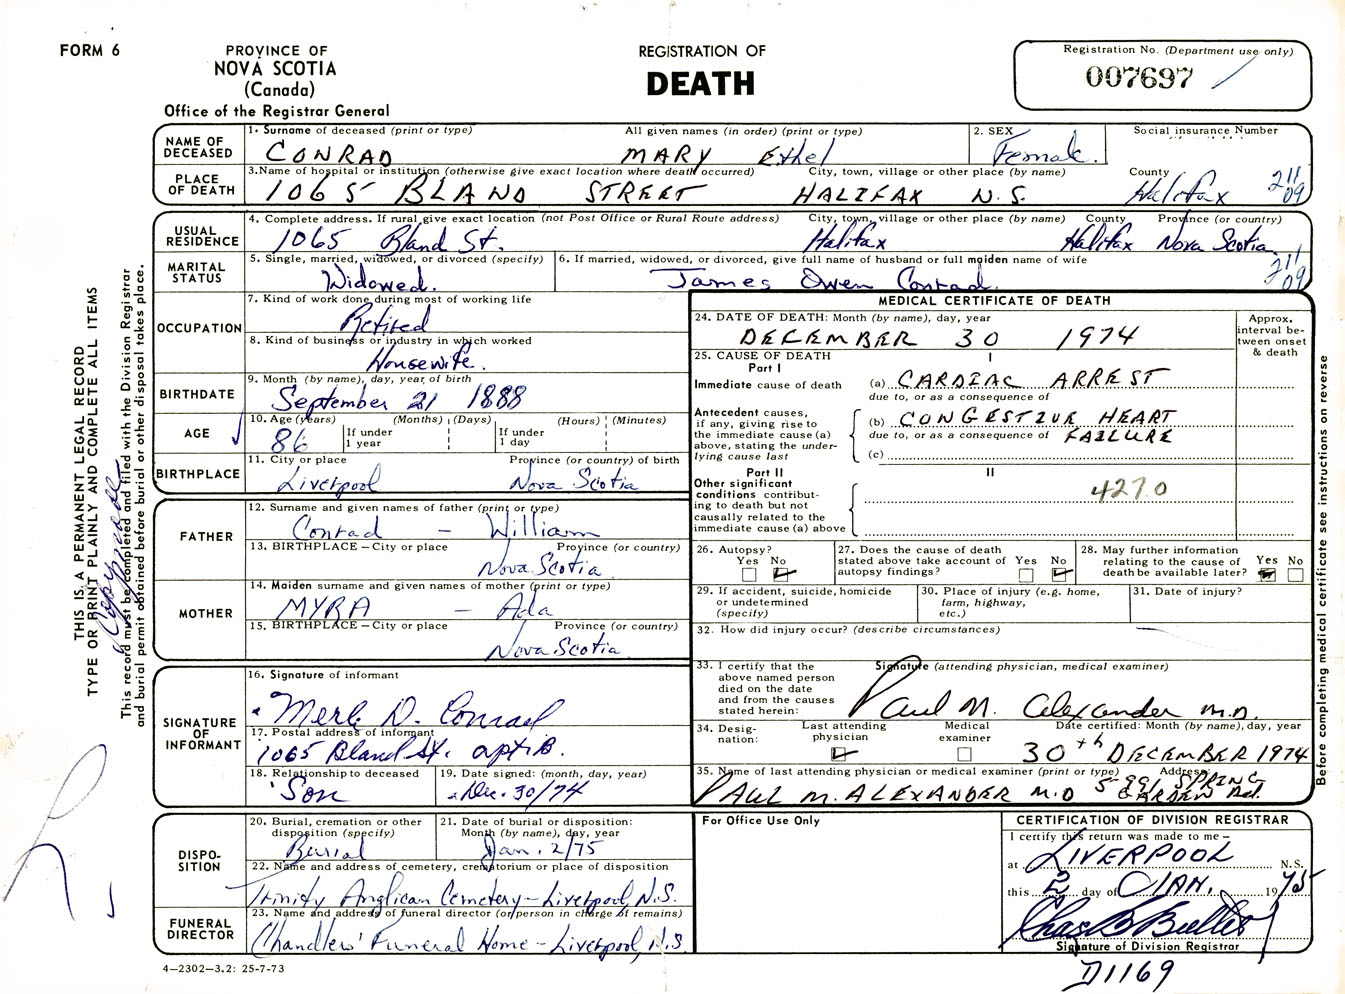 FORM 6
PROVINCE OF
NOVA SCOTIA
(Canada)
Office of the Registrar General
REGISTRATION OF
DEATH
Registration No. (Department use only)
007697
NAME OF DECEASED
1. Surname of deceased (print or type) All given names (in order) (print or type)
CONRAD MARY Ethel
2. SEX
Female.
Social insurance Number
PLACE OF DEATH
3. Name of hospital or institution (otherwise give exact location where death occurred) City, town, village or other place (by name) County
1065 BLAND STREET HALIFAX N.S. Halifax
211
09
USUAL RESIDENCE
4. Complete address. If rural give exact location (not Post Office or Rural Route address) City, town, village or other place (by name) County Province (or country)
1065 Bland St. Halifax Halifax Nova Scotia
211
09
MARITAL STATUS
5. Single, married, widowed, or divorced (specify)
Widowed.
6. If married, widowed, or divorced, give full name of husband or full maiden name of wife
James Owen Conrad.
OCCUPATION
7. Kind of work done during most of working life
Retired
8. Kind of business or industry in which worked
Housewife.
BIRTHDATE
9. Month (by name), day, year of birth
September 21 1888
AGE
10. Age (years) (Months) (Days) (Hours) (Minutes)
86 If under 1 year If under 1 day
BIRTHPLACE
11. City or place Province (or country) of birth
Liverpool Nova Scotia
FATHER
12. Surname and given names of father (print or type)
Conrad - William
13. BIRTHPLACE - City or place Province (or country)
Nova Scotia
MOTHER
14. Maiden surname and given names of mother (print or type)
MYRA - Ada
15. BIRTHPLACE - City or place Province (or country)
Nova Scotia
SIGNATURE OF INFORMANT
16. Signature of informant
Merle D. Conrad
17. Postal address of informant
1065 Bland St. apt B.
18. Relationship to deceased
Son
19. Date signed: (month, day, year)
Dec. 30/74
DISPOSITION
20. Burial, cremation or other disposition (specify)
Burial
21. Date of burial or disposition: Month (by name), day, year
Jan. 2/75
22. Name and address of cemetery, crematorium or place of disposition
Trinity Anglican Cemetery - Liverpool, N.S.
FUNERAL DIRECTOR
23. Name and address of funeral director (or person in charge of remains)
Chandlers' Funeral Home - Liverpool, N.S.
4-2302-3.2: 25-7-73
MEDICAL CERTIFICATE OF DEATH
24. DATE OF DEATH: Month (by name), day, year
DECEMBER 30 1974
Approx. interval between onset & death
25. CAUSE OF DEATH
Part I
I
Immediate cause of death (a) CARDIAC ARREST
due to, or as a consequence of
Antecedent causes, if any, giving rise to the immediate cause (a) above, stating the underlying cause last
(b) CONGESTIVE HEART
due to, or as a consequence of FAILURE
(c)
Part II
II
Other significant conditions contributing to death but not causally related to the immediate cause (a) above
4270
26. Autopsy?
Yes No
27. Does the cause of death stated above take account of autopsy findings?
Yes No
28. May further information relating to the cause of death be available later?
Yes No
29. If accident, suicide, homicide or undetermined (specify)
30. Place of injury (e.g. home, farm, highway, etc.)
31. Date of injury?
32. How did injury occur? (describe circumstances)
33. I certify that the above named person died on the date and from the causes stated herein:
Signature (attending physician, medical examiner)
Paul M. Alexander M.D.
34. Designation:
Last attending physician
Medical examiner
Date certified: Month (by name), day, year
30th DECEMBER 1974
35. Name of last attending physician or medical examiner (print or type) Address
PAUL M. ALEXANDER M.D 5991 SPRING GARDEN Rd.
For Office Use Only
CERTIFICATION OF DIVISION REGISTRAR
I certify this return was made to me -
at LIVERPOOL N.S.
this 2 day of JAN. 1975
Signature of Division Registrar
D1169
THIS IS A PERMANENT LEGAL RECORD
TYPE OR PRINT PLAINLY AND COMPLETE ALL ITEMS
This record must be completed and filed with the Division Registrar
and burial permit obtained before burial or other disposal takes place.
Before completing medical certificate see instructions on reverse